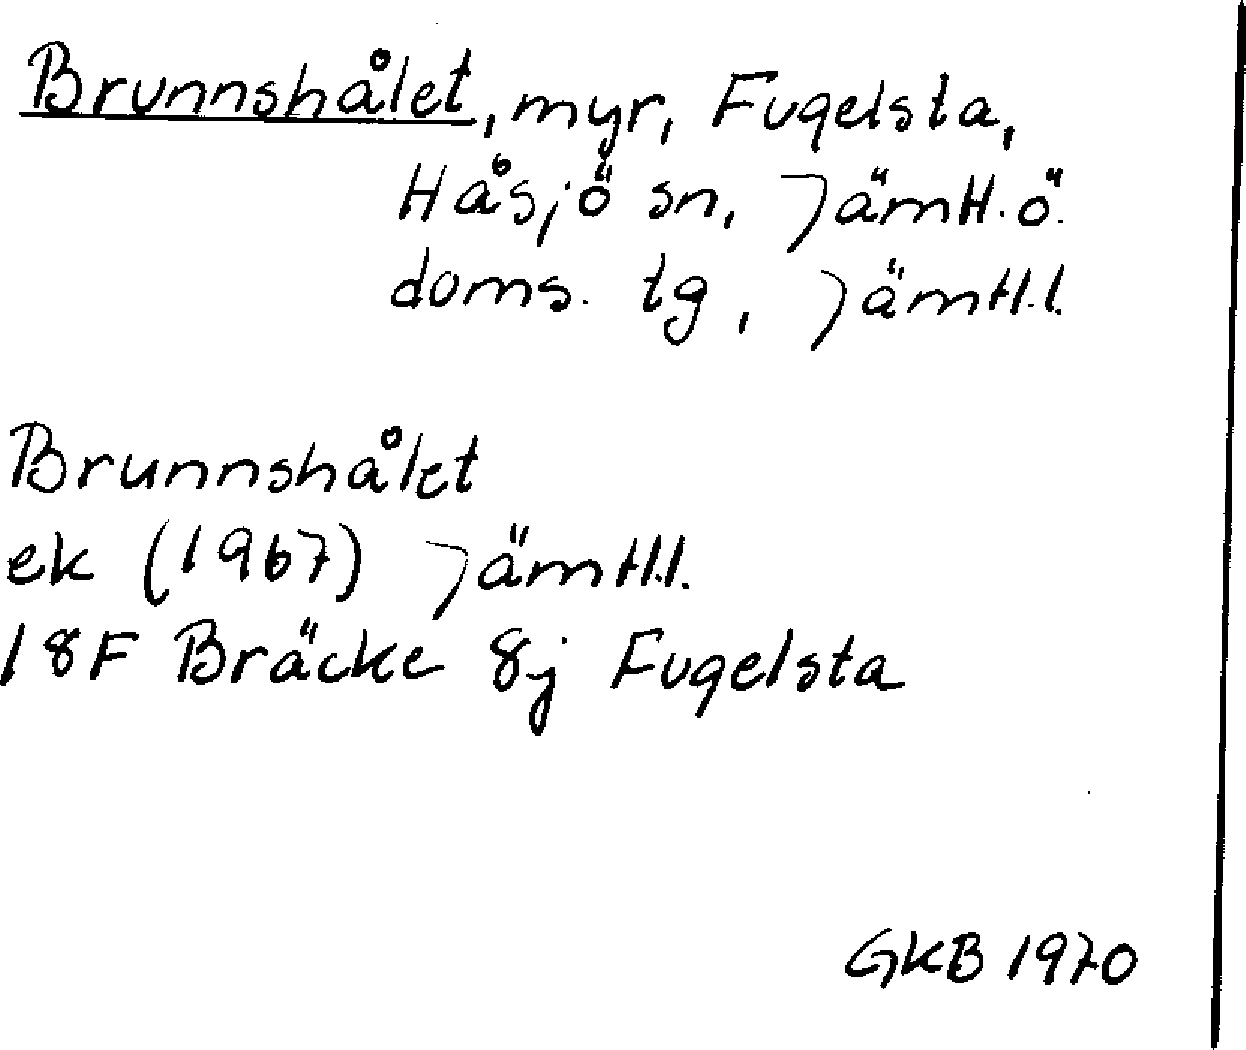 Brunnshålet, myr, Fugelsta,
Håsjö sn, Jämtl. ö.
doms. tg, Jämtl. l.
Brunnshålet
ek (1967) Jämtl.l.
18F Bräcke 8j Fugelsta
GKB 1970